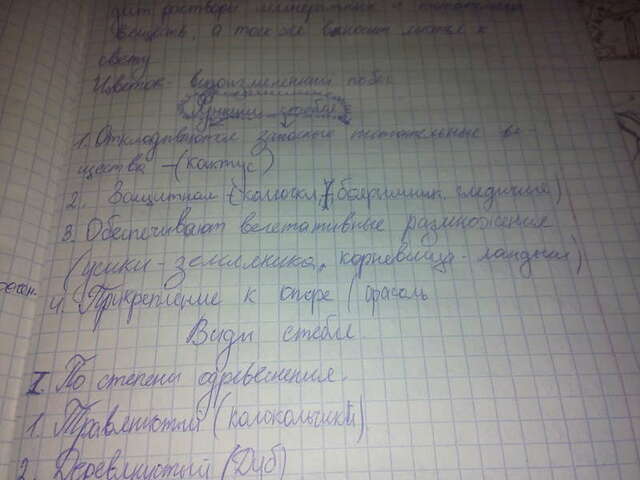 дит раствори минеральных и питательных
веществ, а так же выносит листья к
свету
Цветок - видоизмененный побег
Функции стебля
1. Откладываются запасные питательные ве-
щества - (кактус)
2. Защитная (колючки, боярышник, гледичия)
3. Обеспечивают вегетативные размножения
(усики - земляника, корневища - ландыш)
4. Прикрепление к опоре (фасоль
Виды стебля
I. По степени одревеснения.
1. Травянистый (колокольчик)
2. Деревянистый (Дуб)